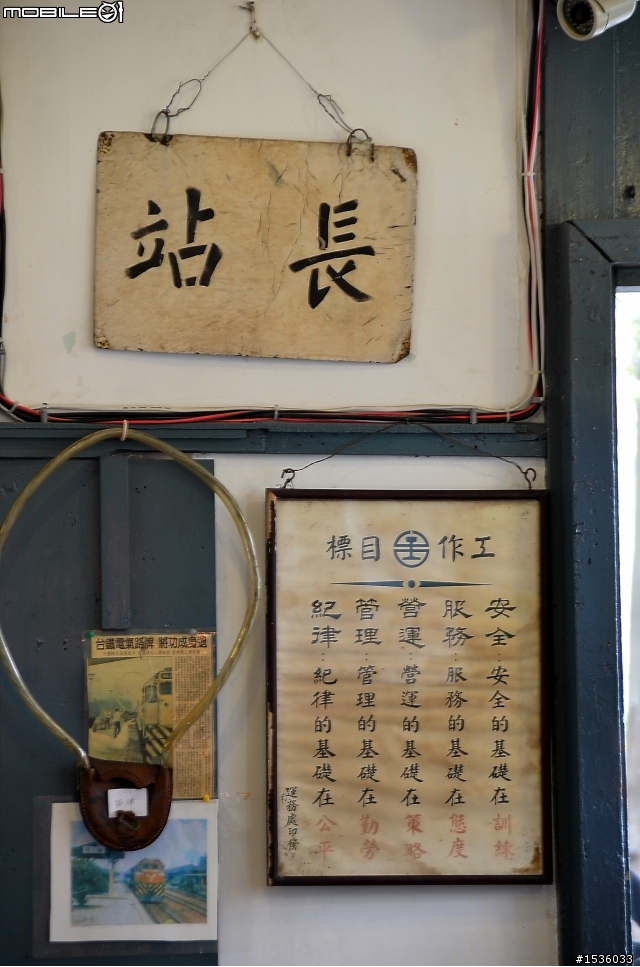 MOBILE01
站長
工作目標
安全:安全的基礎在訓練
服務:服務的基礎在態度
營運:營運的基礎在策略
管理:管理的基礎在勤勞
紀律:紀律的基礎在公平
運務處印發
台鐵電氣路牌 將功成身退
#1536033